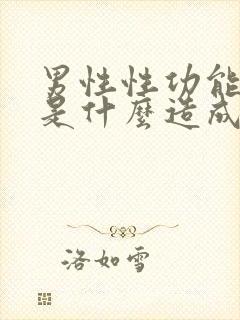 男性性功能
是什麼造成
洛如雪